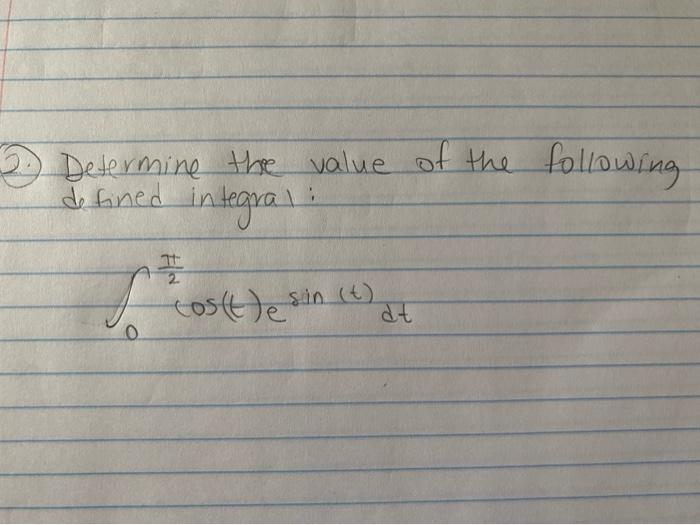 2.) Determine the value of the following
defined integral:
∫₀^(π/2) cos(t)e^(sin(t)) dt